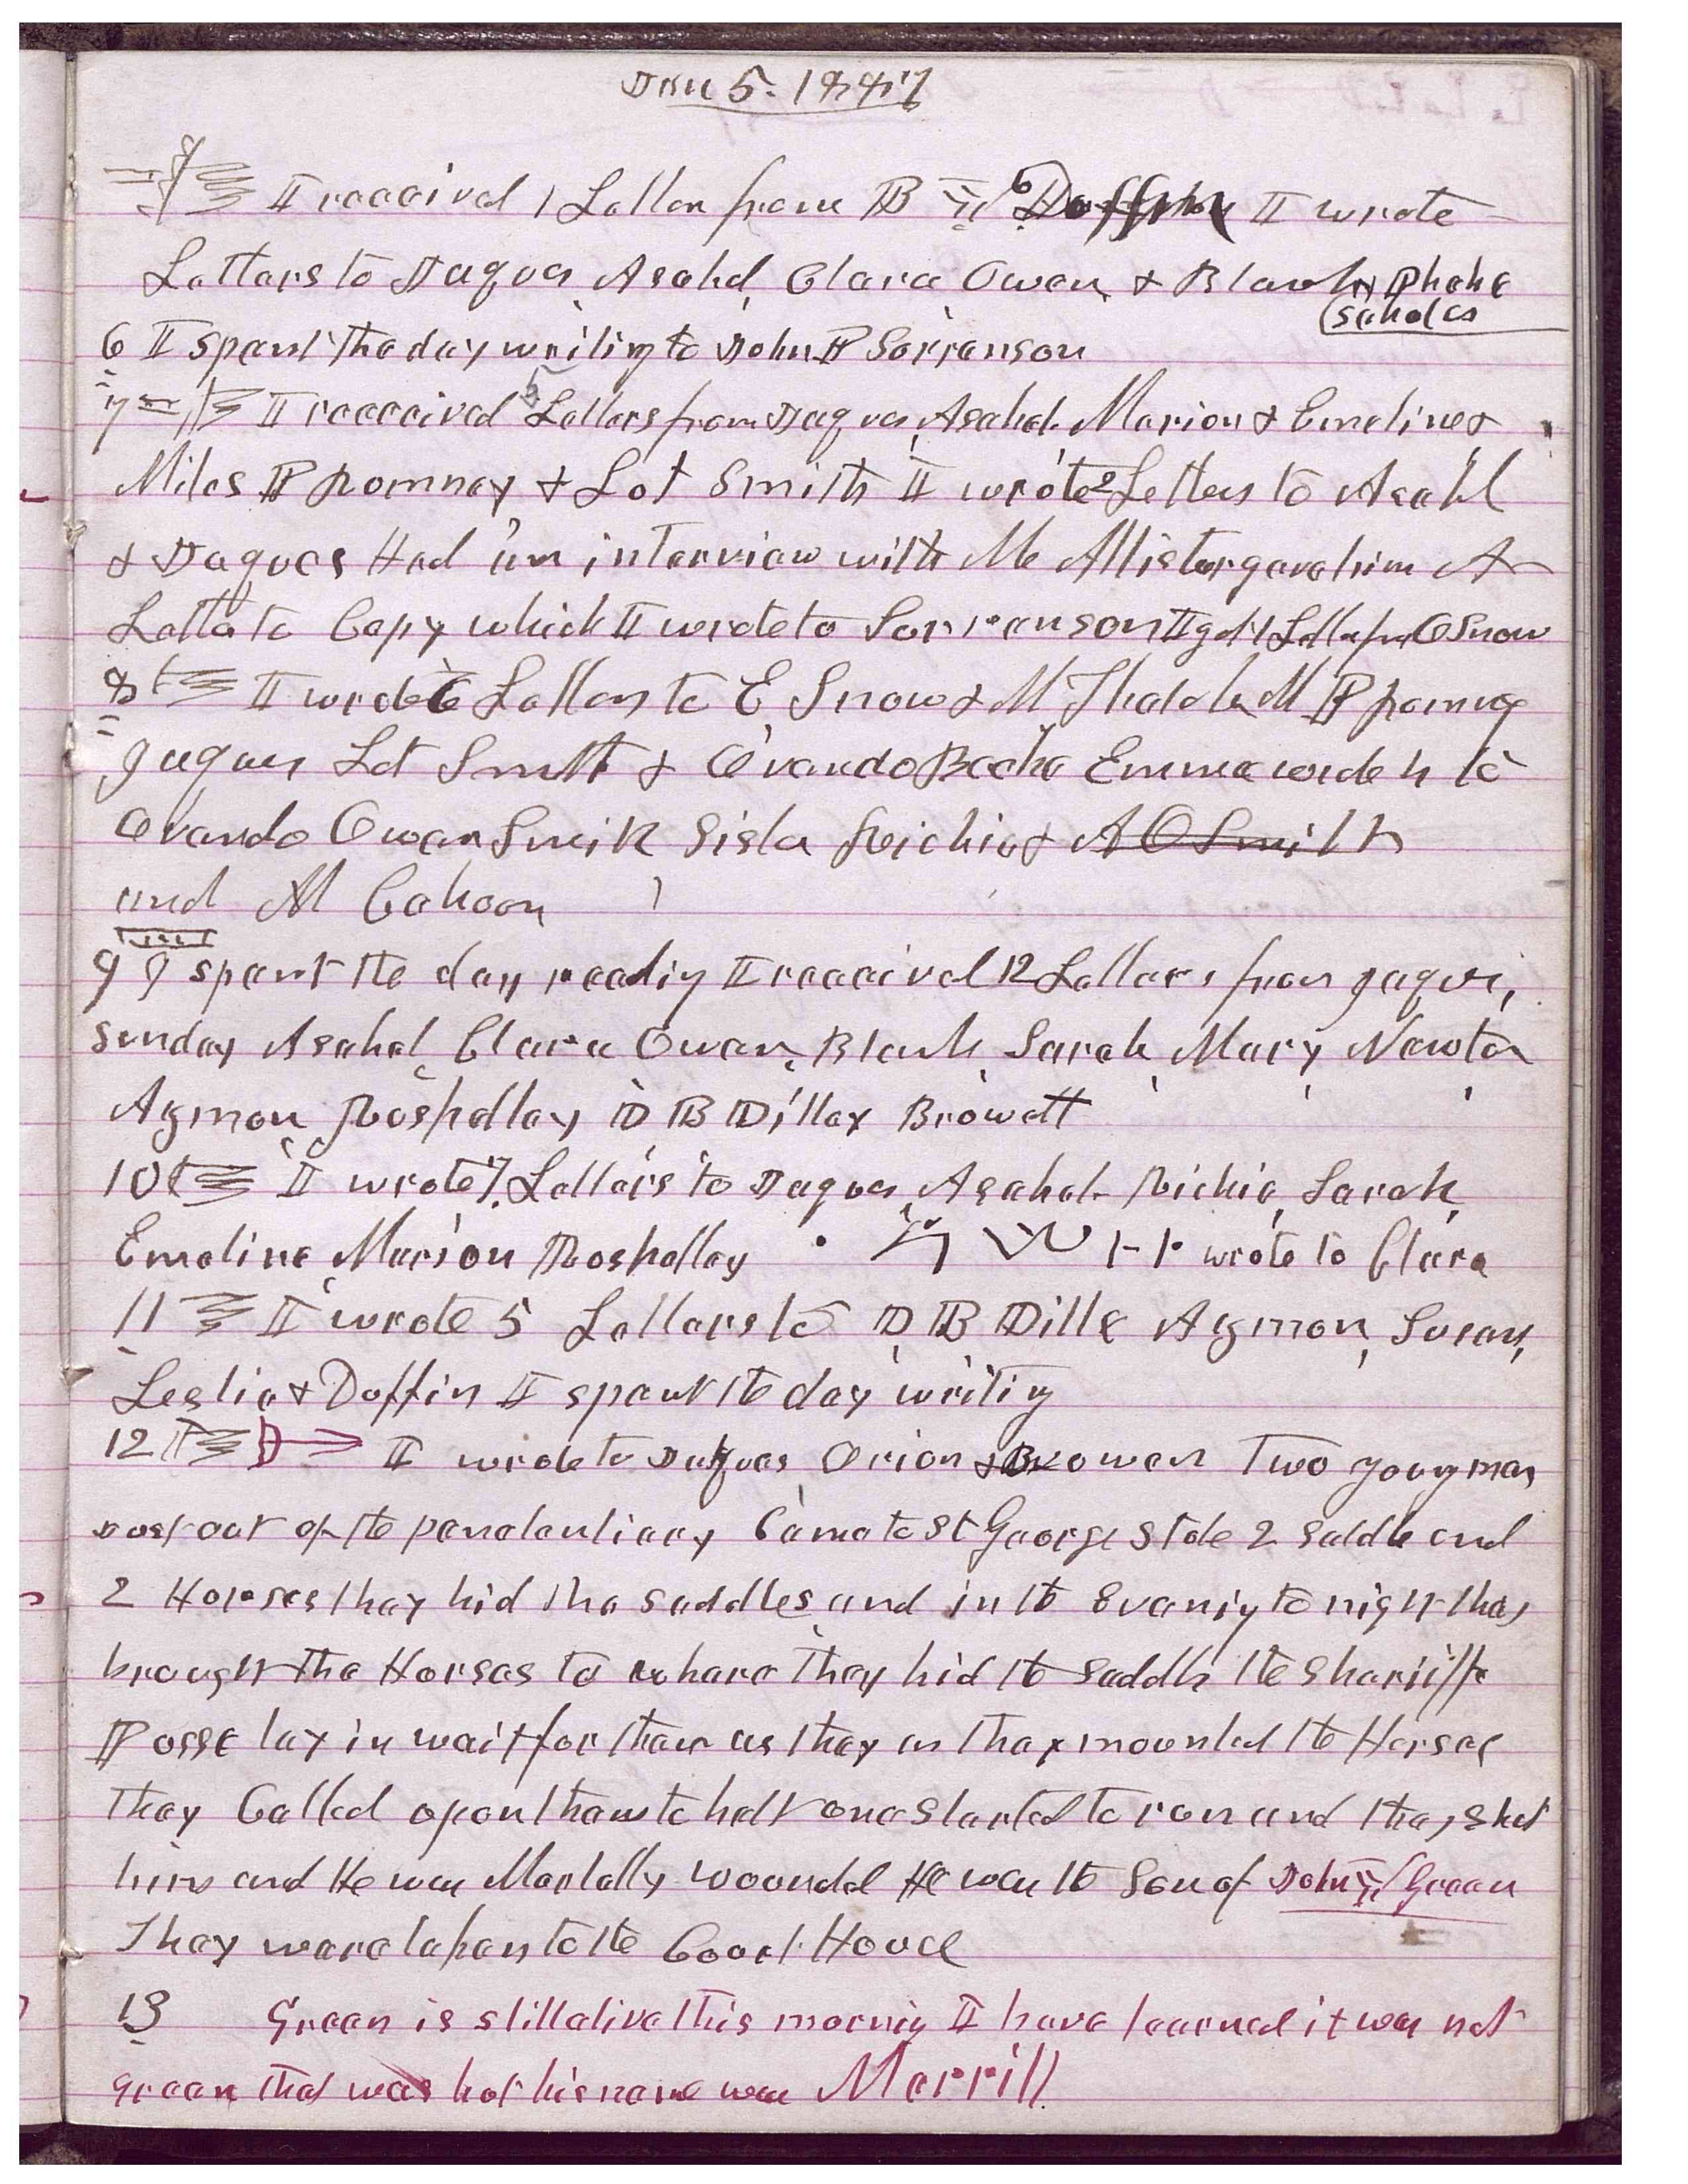 Jan 5. 1887
I received 1 Letter from B Y 6 Duffin I wrote
Letters to Jaques Asahel, Clara Owen, & Blanch Phebe
Scholes
6 I spent the day writing to John P Sorranson
7 I recceived 5 Letters from Jaques, Asahel. Marion & Emeline &
Miles P Romney & Lot Smith II wrote 2 Letters to Asahel
& Jaques Had an interview with Mc Allister gave him A
Letter to Copy which I wrote to Sorranson I got 1 Letter from O Snow
8t I wrote 6 Letters to E Snow & M Thatcher M P Romney
Jaques Lot Smith & Ovando Beebe Emma wrote 4 to
Ovando Owen Smith Sister Richie & A O Smith
and M Cahoon
9 I spent the day reading I received 12 Letters from Jaques,
Sunday Asahel, Clara Owen, Blanch, Sarah, Mary, Newton
Azmon Roskelley D B Dilley Browett
10t I wrote 7 Letters to Jaques, Asahel. Richie, Sarah,
Emeline, Marion Roskelley wrote to Clara
11 I wrote 5 Letters to D B Dille Azmon, Susan,
Leslie & Duffin I spent the day writing
12 I wrote to Jaques Orion & Bro owen Two young men
Just out of the penatentiary Came to St George Stole 2 Saddle and
2 Horses they hid the Saddles and in the Evening to night they
brought the Horses to whare they hid the Saddls the Shariiffs
Posse lay in wait for them as they as they mounted the Horses
They Called upon them to halt one Started to run and they shot
him and He was Mortally wounded He was the Son of John Y Green
They ware taken to the Coort House
13 Green is still alive this morning I have learned it was not
green that was shot his name was Merrill